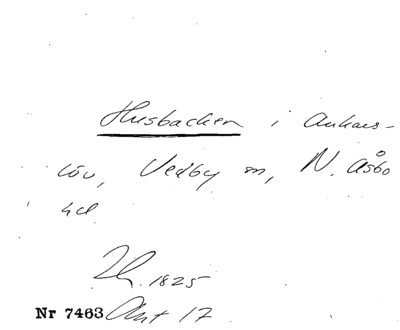 Husbacken i Anhus-
löv, Vedby sn, N. Åsbo
hd
1825
Nr 7463 Akt 17